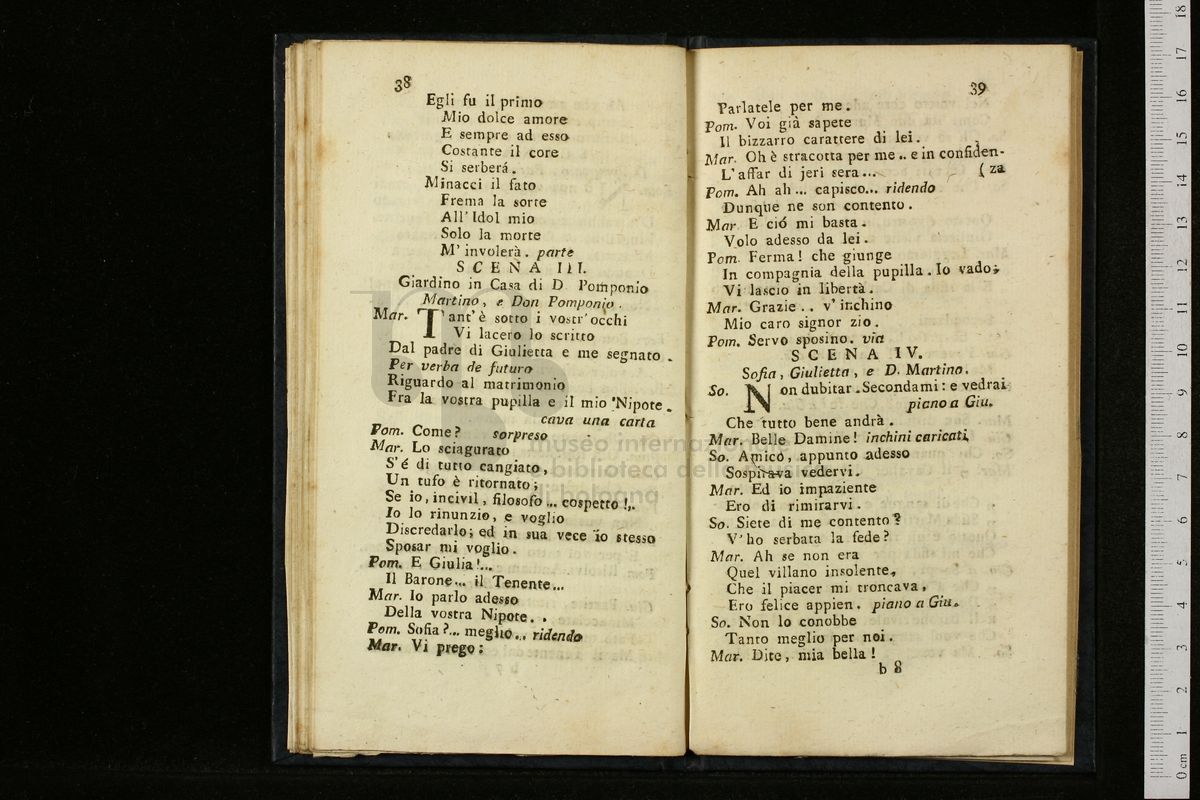 38
Egli fu il primo
Mio dolce amore
E sempre ad esso
Costante il core
Si serberá.
Minacci il fato
Frema la sorte
All' Idol mio
Solo la morte
M' involerà. parte
SCENA III.
Giardino in Casa di D Pomponio
Martino, e Don Pomponio.
Mar. Tant' è sotto i vostr' occhi
Vi lacero lo scritto
Dal padre di Giulietta e me segnato.
Per verba de futuro
Riguardo al matrimonio
Fra la vostra pupilla e il mio Nipote.
cava una carta
Pom. Come? sorpreso
Mar. Lo sciagurato
S' é di tutto cangiato,
Un tufo è ritornato;
Se io, incivil, filosofo... cospetto!..
Io lo rinunzio, e voglio
Discredarlo; ed in sua vece io stesso
Sposar mi voglio.
Pom. E Giulia!...
Il Barone... il Tenente...
Mar. Io parlo adesso
Della vostra Nipote. .
Pom. Sofia?... meglio... ridendo
Mar. Vi prego:
39
Parlatele per me.
Pom. Voi già sapete
Il bizzarro carattere di lei.
Mar. Oh è stracotta per me.. e in confiden-
L' affar di jeri sera... (za
Pom. Ah ah... capisco... ridendo
Dunque ne son contento.
Mar. E ció mi basta.
Volo adesso da lei.
Pom. Ferma! che giunge
In compagnia della pupilla. Io vado;
Vi lascio in libertà.
Mar. Grazie.. v' inchino
Mio caro signor zio.
Pom. Servo sposino. via
SCENA IV.
Sofia, Giulietta, e D. Martino.
So. Non dubitar. Secondami: e vedrai
piano a Giu.
Che tutto bene andrà.
Mar. Belle Damine! inchini caricati
So. Amico, appunto adesso
Sospirava vedervi.
Mar. Ed io impaziente
Ero di rimirarvi.
So. Siete di me contento?
V' ho serbata la fede?
Mar. Ah se non era
Quel villano insolente,
Che il piacer mi troncava,
Ero felice appien. piano a Giu.
So. Non lo conobbe
Tanto meglio per noi.
Mar. Dite, mia bella!
b 8
museo internazionale
biblioteca della musica
di bologna
0 cm 1 2 3 4 5 6 7 8 9 10 11 12 13 14 15 16 17 18